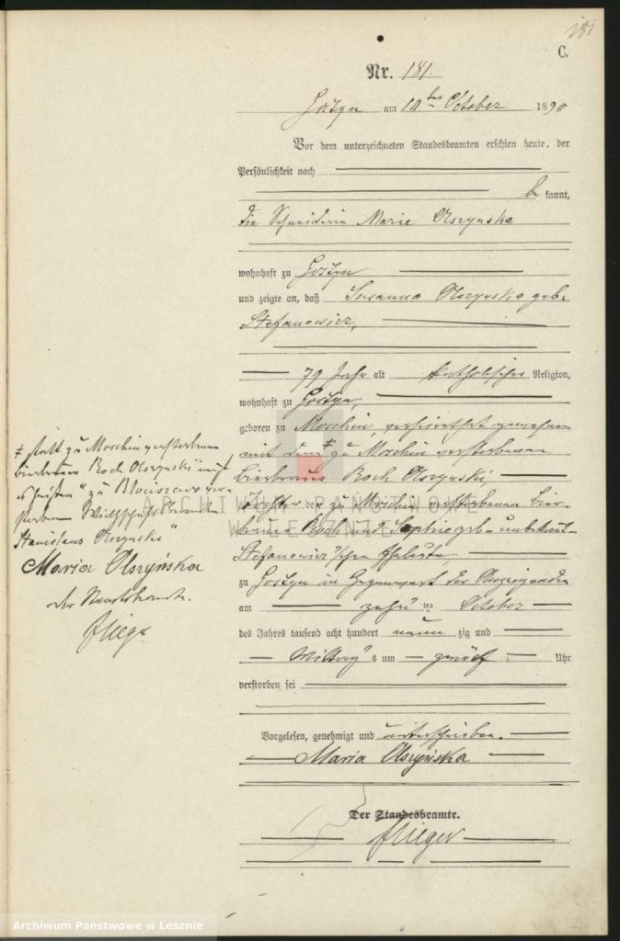 181
C.
Nr. 181.
Gostyn am 10ten October 1890
Vor dem unterzeichneten Standesbeamten erschien heute, der
Persönlichkeit nach
bekannt,
die Schneiderin Marie Olszynska
wohnhaft zu Gostyn
und zeigte an, daß Susanna Olszynska geb.
Stefanowicz,
79 Jahr alt katholischer Religion,
wohnhaft zu Gostyn,
geboren zu Moschin, verheirathet gewesen
mit dem ‡ zu Moschin verstorbenen
Bierbrauer Roch Olszynski,
Tochter der zu Moschin verstorbenen Bier-
brauer Roch und Sophie geb. unbekannt
Stefanowicz'schen Eheleute,
zu Gostyn in Gegenwart der Anzeigenden
am zehn ten October
des Jahres tausend acht hundert neun zig und
Mittags um zwölf Uhr
verstorben sei
Vorgelesen, genehmigt und unterschrieben.
Maria Olszyńska
Der Standesbeamte.
Flieger
‡ statt "zu Moschin verstorbenen
Bierbrauer Roch Olszynski" muß
es heißen "zu ver-
storbenen
Stanislaus Olszynski"
Maria Olszyńska
Der Standesbeamte.
Flieger
ARCHIWUM PAŃSTWOWE
W LESZNIE
Archiwum Państwowe w Lesznie